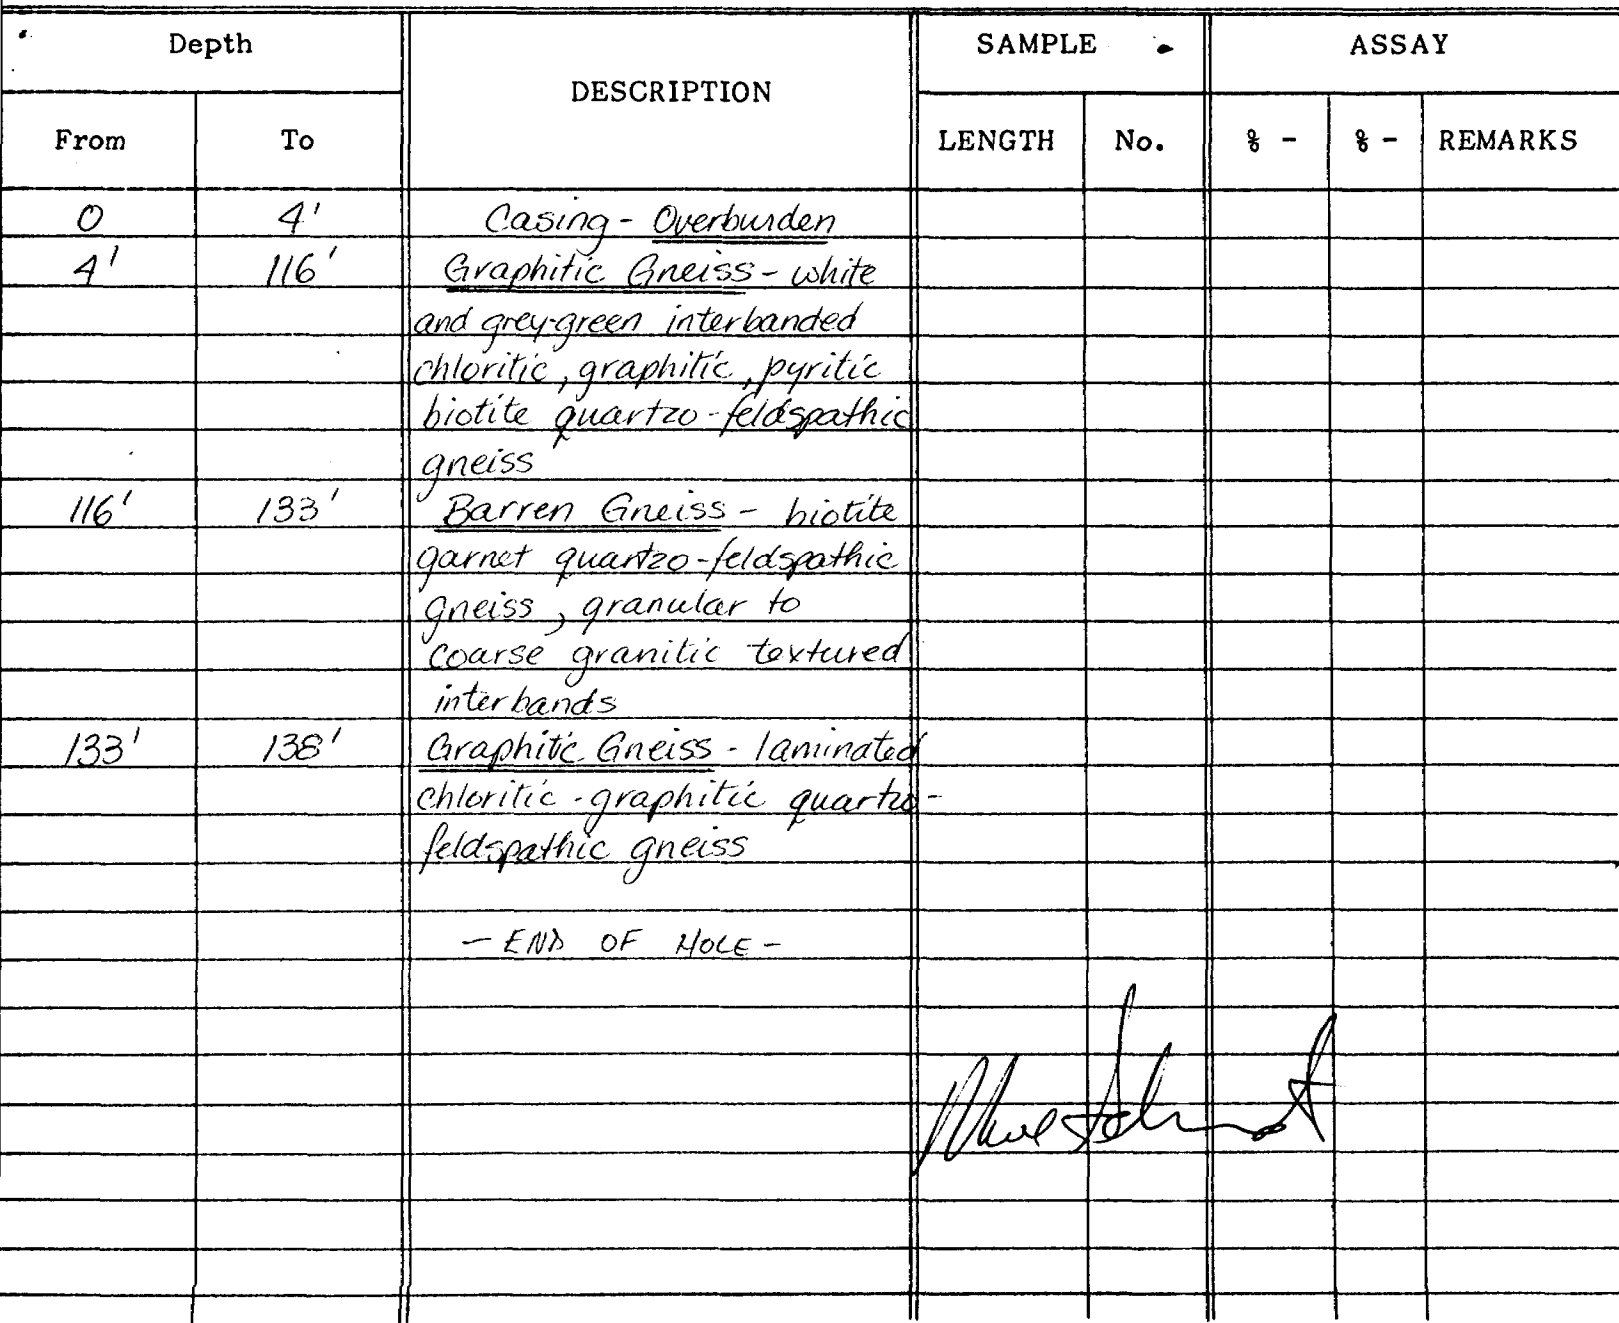 Depth DESCRIPTION SAMPLE ASSAY
From To LENGTH No. % - % - REMARKS
0 4' Casing - Overburden
4' 116' Graphitic Gneiss - white
and grey-green interbanded
chloritic, graphitic, pyritic
biotite quartzo-feldspathic
gneiss
116' 133' Barren Gneiss - biotite
garnet quartzo-feldspathic
gneiss, granular to
coarse granitic textured
interbands
133' 138' Graphitic Gneiss - laminated
chloritic-graphitic quartzo-
feldspathic gneiss
- END OF HOLE -